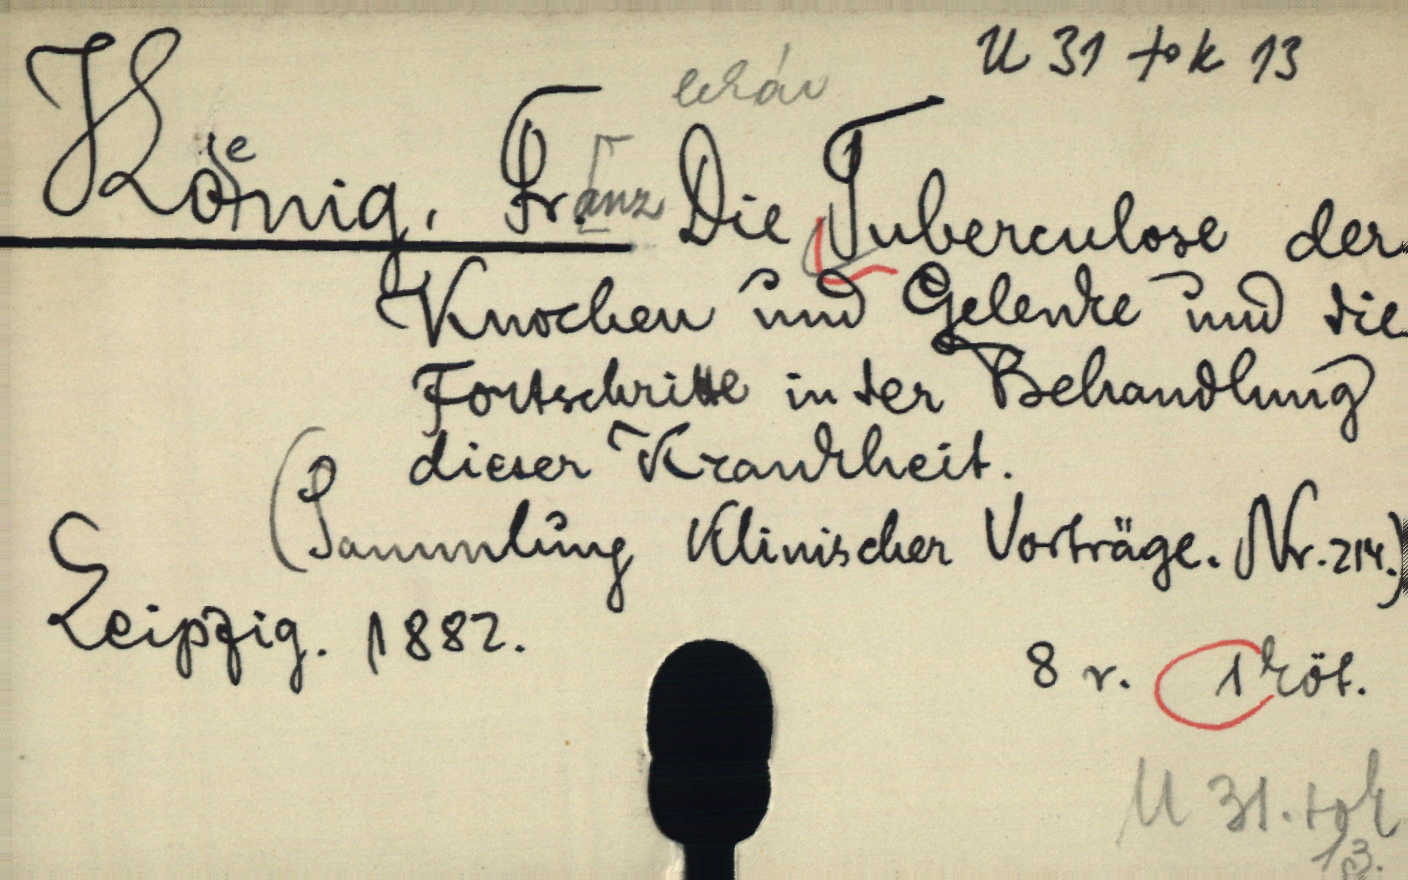 U 31 tok 13
König, Franz Die Tuberculose der
Knochen und Gelenke und die
Fortschritte in der Behandlung
dieser Krankheit.
(Sammlung Klinischer Vorträge. Nr. 214.)
Leipzig. 1882.
8 r. 1 köt.
U 31. tok
13.